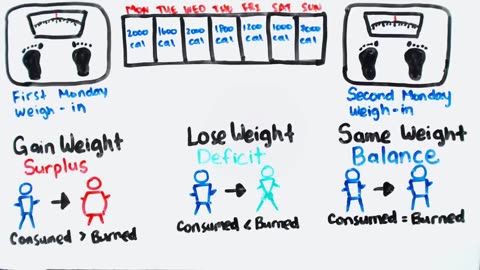 MON TUE WED THU FRI SAT SUN
2000 1600 2000
cal cal cal cal cal cal cal
First Monday
Weigh-in
Second Monday
Weigh-in
Gain Weight
Surplus
Consumed > Burned
Lose Weight
Deficit
Consumed < Burned
Same Weight
Balance
Consumed = Burned